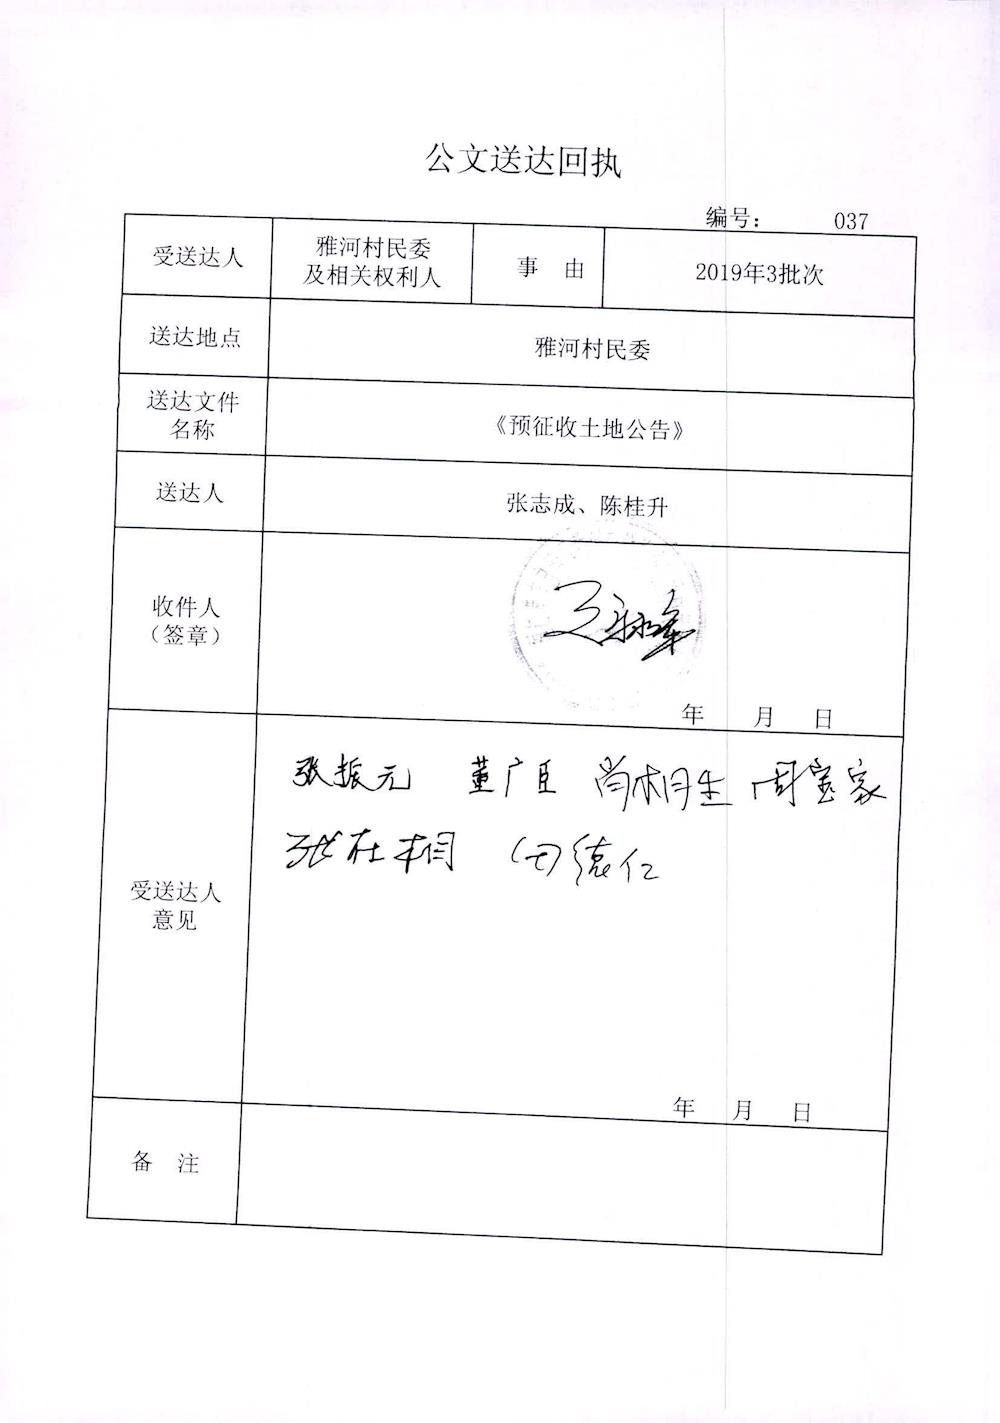 公文送达回执
编号： 037
受送达人 雅河村民委及相关权利人 事 由 2019年3批次
送达地点 雅河村民委
送达文件名称 《预征收土地公告》
送达人 张志成、陈桂升
收件人（签章）
年 月 日
张振元 董广臣 尚相生 周宝家
张在相 田德仁
受送达人意见
年 月 日
备 注